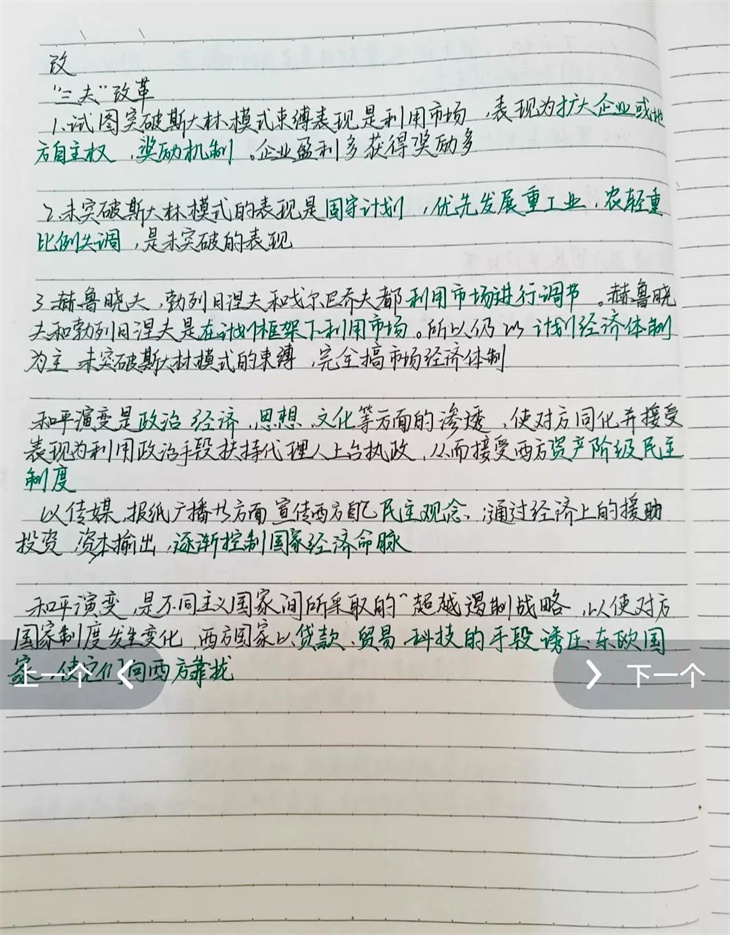 改
“三夫”改革
1.试图突破斯大林模式束缚表现是利用市场，表现为扩大企业或地
方自主权，奖励机制。企业盈利多获得奖励多
2.未突破斯大林模式的表现是固守计划，优先发展重工业，农轻重
比例失调，是未突破的表现
3.赫鲁晓夫，勃列日涅夫和戈尔巴乔夫都利用市场进行调节。赫鲁晓
夫和勃列日涅夫是在计划框架下利用市场。所以仍以计划经济体制
为主 未突破斯大林模式的束缚，完全搞市场经济体制
和平演变是政治 经济，思想，文化等方面的渗透，使对方同化并接受
表现为利用政治手段扶持代理人上台执政，从而接受西方资产阶级民主
制度
以传媒，报纸广播书方面宣传西方自己民主观念，通过经济上的援助
投资 资本输出，逐渐控制国家经济命脉
和平演变，是不同主义国家间所采取的“超越遏制战略，以使对方
国家制度发生变化，西方国家以贷款、贸易、科技的手段诱压东欧国
家，使它们向西方靠拢
上一个
下一个